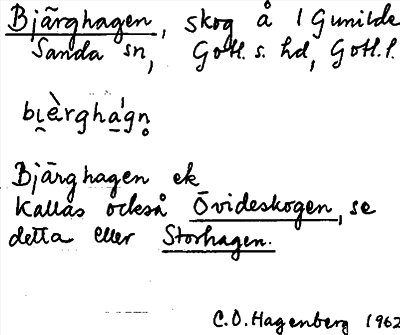 Bjärghagen, skog å 1 Gunilde
Sanda sn, Gotl. s. hd, Gotl. l.
bi̯èrghágn̥
Bjärghagen ek
Kallas också Övideskogen, se
detta eller Storhagen.
C.O. Hagenberg 1962